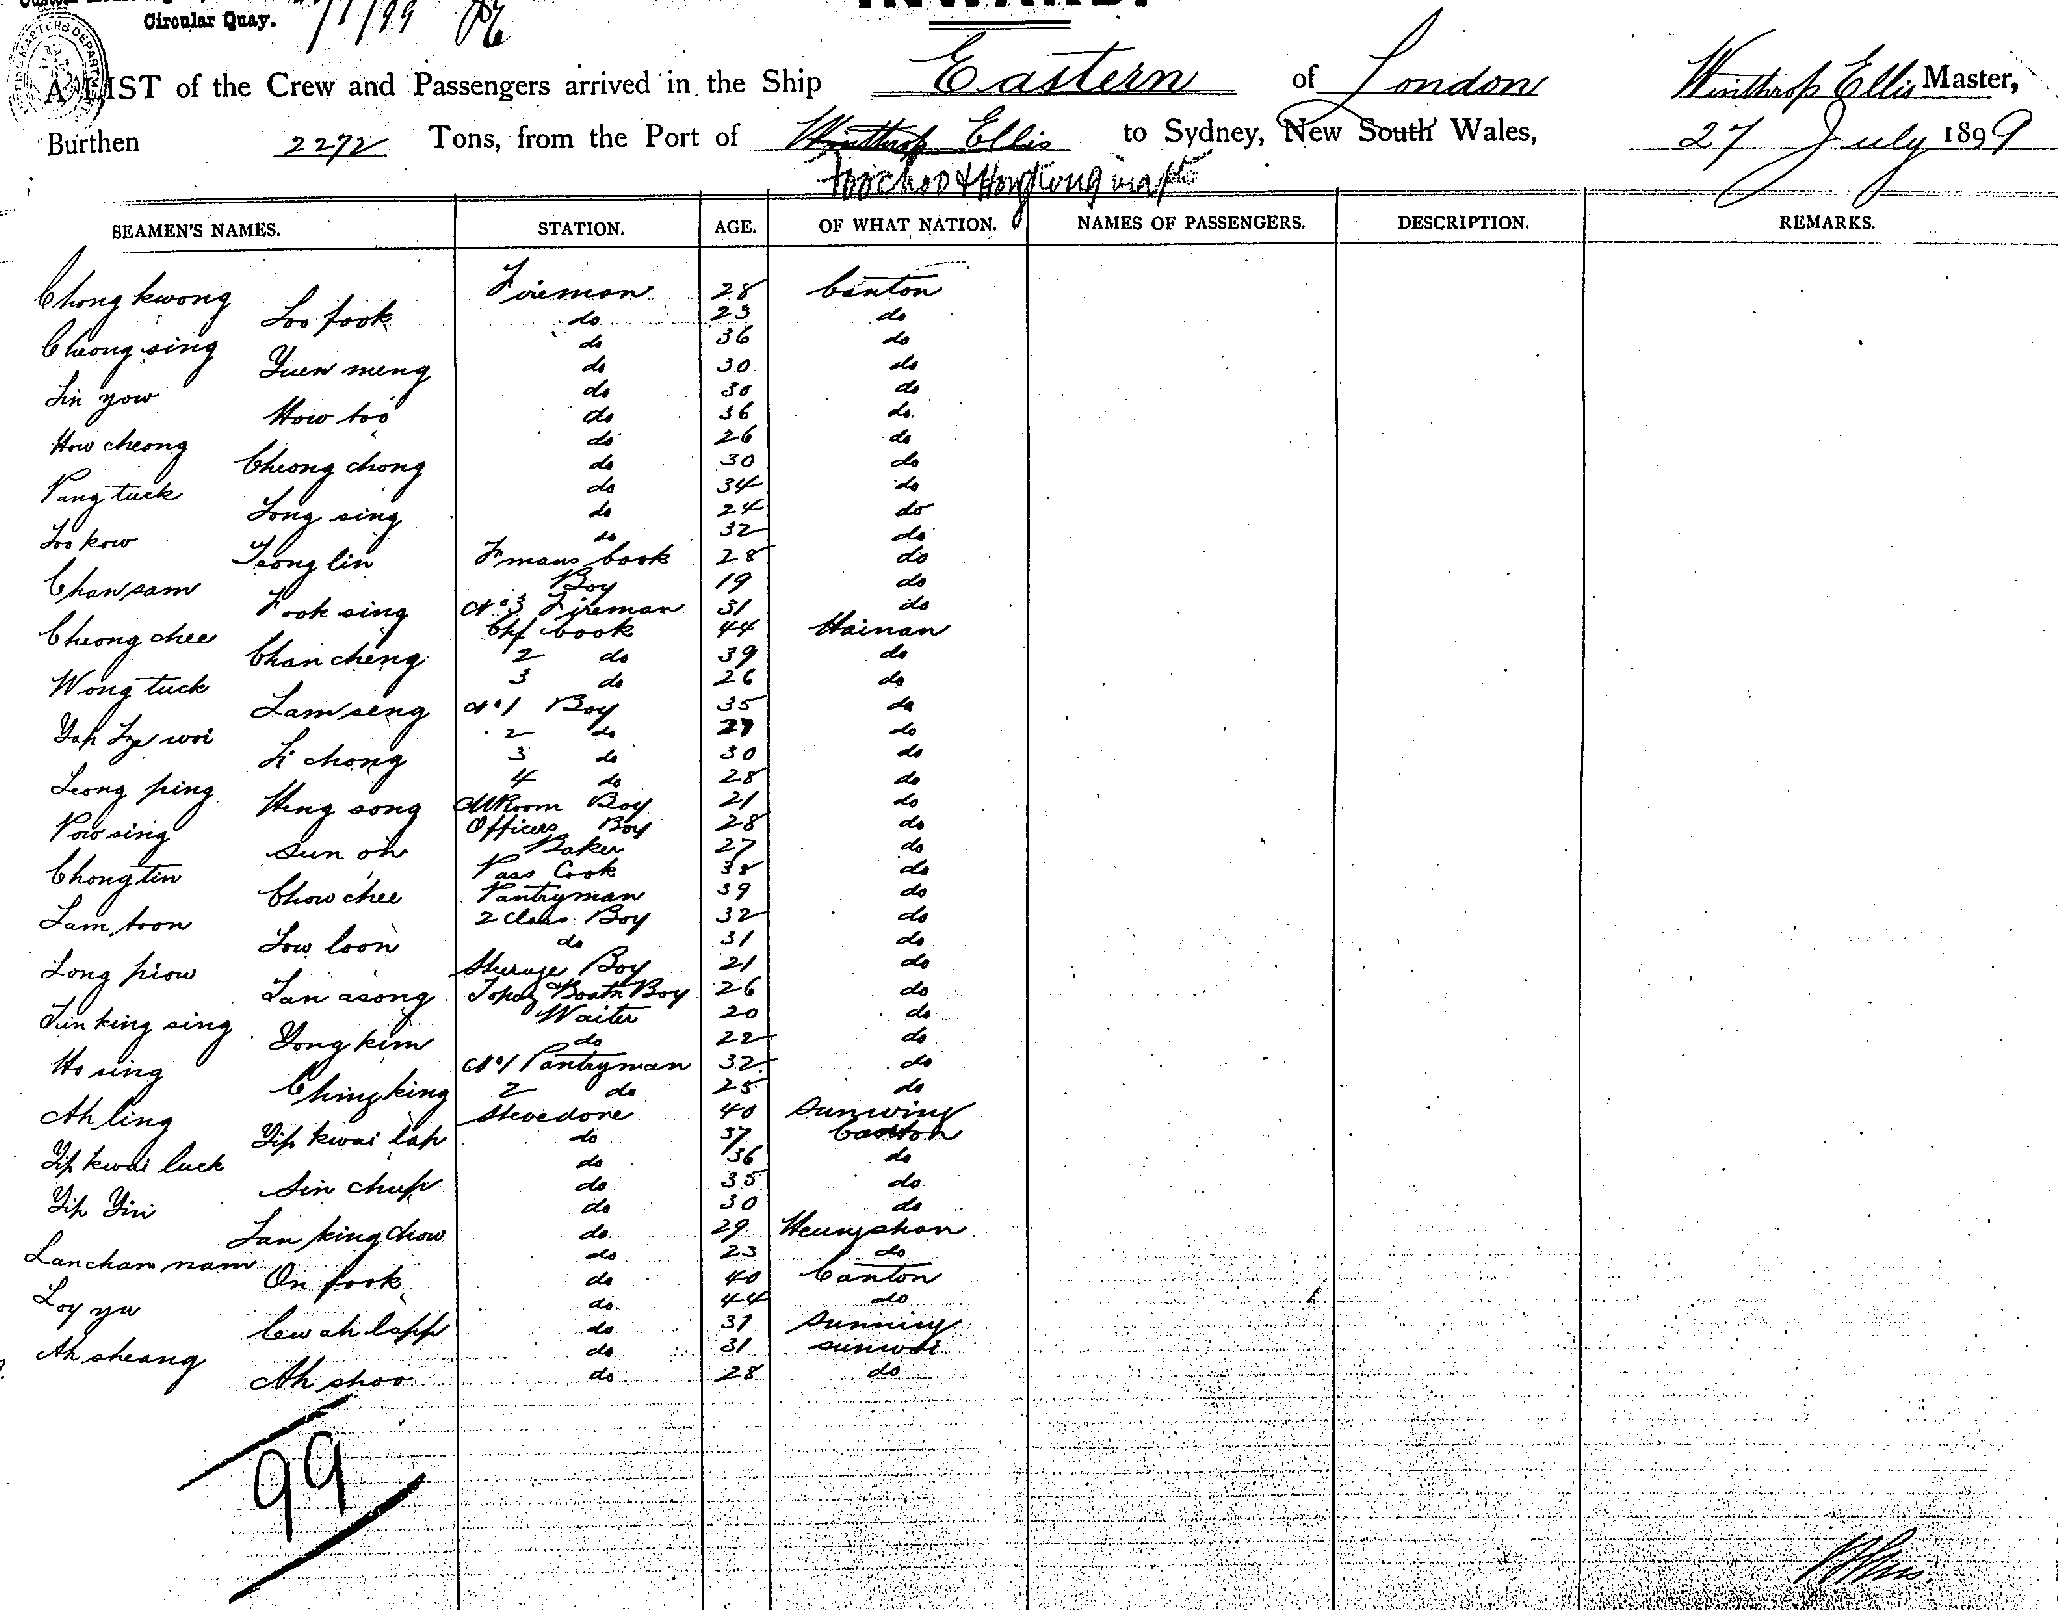 Circular Quay.
INWARD.
A LIST of the Crew and Passengers arrived in the Ship Eastern of London Winthrop Ellis Master,
Burthen 2272 Tons, from the Port of Winthrop Ellis to Sydney, New South Wales, 27 July 1899
Foochoo & Hongkong via pts
SEAMEN'S NAMES. STATION. AGE. OF WHAT NATION. NAMES OF PASSENGERS. DESCRIPTION. REMARKS.
Chong kwong Fireman 28 Canton
Loo fook do 23 do
Cheong sing do 36 do
Yuen meng do 30 do
Lin yow do 30 do
How too do 36 do
How cheong do 26 do
Cheong chong do 30 do
Pang tuck do 34 do
Long sing do 24 do
Loo kow do 32 do
Leong lin F'mans Cook 28 do
Chan sam Boy 19 do
Fook sing No 3 Fireman 31 do
Cheong chee Chf Cook 44 Hainan
Chan cheng 2 do 39 do
Wong tuck 3 do 26 do
Lam seng No 1 Boy 35 do
Yap woi 2 do 27 do
Li chong 3 do 30 do
Leong ping 4 do 28 do
Hing song MRoom Boy 21 do
Pow sing Officers Boy 28 do
Sun on Baker 27 do
Chong tin Pass Cook 38 do
Chow chee Pantryman 39 do
Lam toon 2 Class Boy 32 do
Low loon do 31 do
Long piow Steerage Boy 21 do
Tan asong Topaz & Boatn Boy 26 do
Tun king sing Waiter 20 do
Yong kim do 22 do
Ho sing No 1 Pantryman 32 do
Ching king 2 do 25 do
Ah ling Stevedore 40 Sunwing
Yip kwai lap do 37 Canton
Yip kwai luck do 36 do
Sin chup do 35 do
Yip Yin do 30 do
Lan king chow do 29 Heungshan
Lancham nam do 23 do
On fook do 40 Canton
Loy yu do 44 do
Cew ah lapp do 31 Sunning
Ah sheang do 31 Sunwoi
Ah shoo do 28 do
99